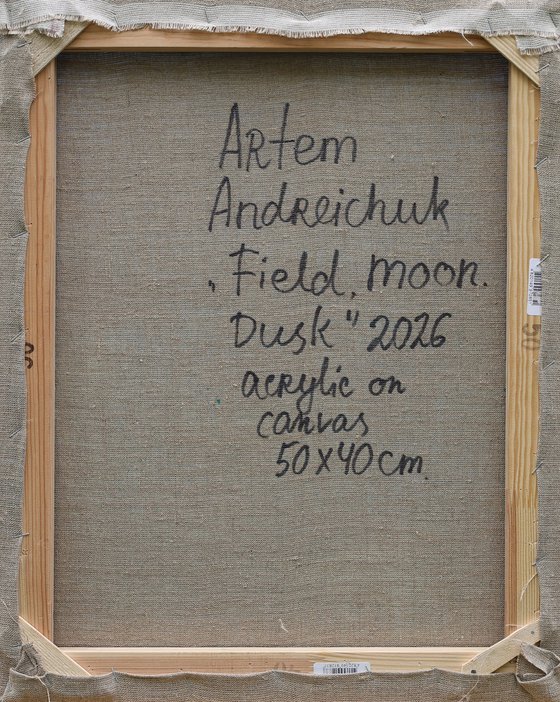 Artem
Andreichuk
"Field, moon.
Dusk" 2026
acrylic on
canvas
50x40cm.
50